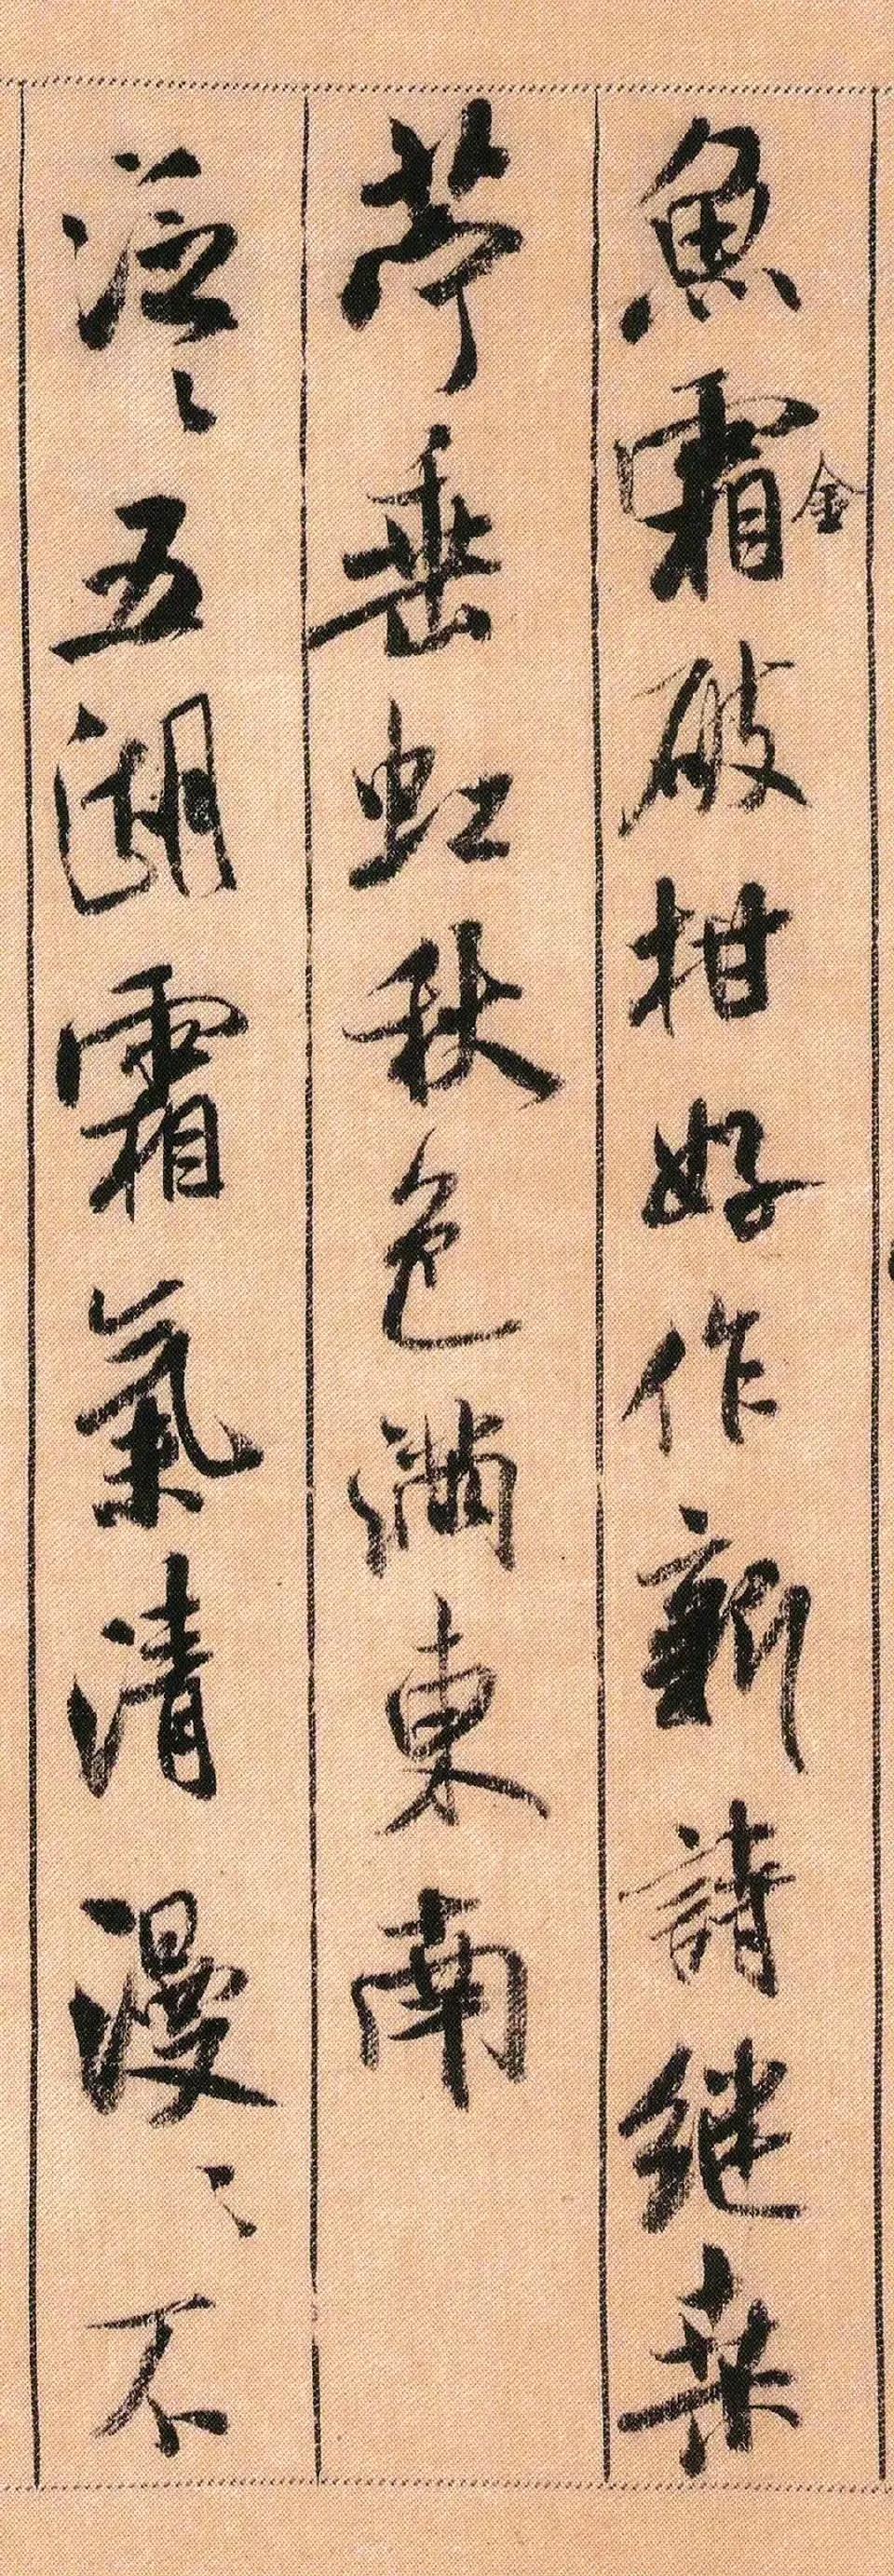 魚霜金破柑好作新詩繼桑
苧垂虹秋色滿東南
泛〻五湖霜氣清漫〻不